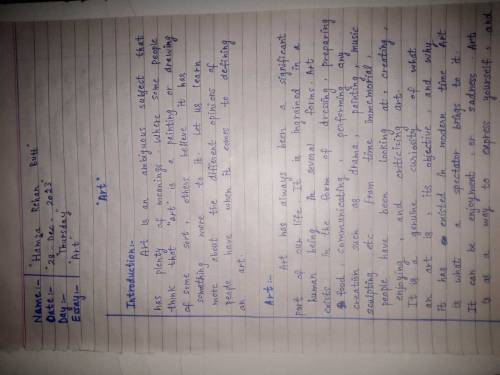 Name:- "Hamza Rehan Butt"
Date:- "28 Dec, 2023"
Day:- "Thursday"
Essay:- "Art"
"Art"
Introduction:-
Art is an ambiguous subject that
has plenty of meanings where some people
think that "art" is a painting or drawing
of some sort, others believe it has
something more to it. Let us learn
more about the different opinions of
people have when it comes to defining
an art
Art:-
Art has always been a significant
part of our life. It is ingrained in a
human being in several forms. Art
exists in the form of dressing, preparing
food communicating, performing any
creation such as drama, painting, music
sculpting etc. From time immemorial,
people have been looking at, creating,
enjoying, and criticizing art.
It is a genuine curiosity of what
an art is, its objective, and why
it has existed in modern time Art
is what a spectator brings to it.
It can be enjoyment, or sadness Art
is a way to express yourself, and